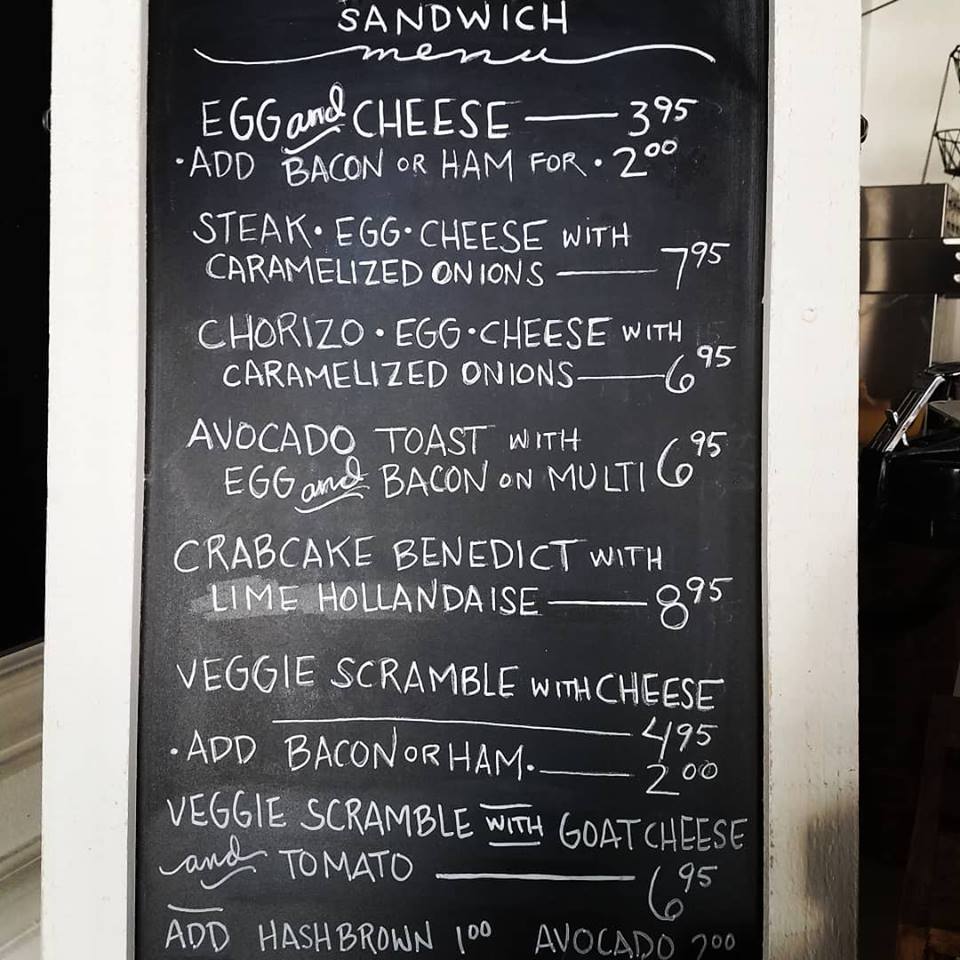 SANDWICH
menu
EGG and CHEESE — 3.95
• ADD BACON OR HAM FOR • 2.00
STEAK • EGG • CHEESE WITH
CARAMELIZED ONIONS — 7.95
CHORIZO • EGG • CHEESE WITH
CARAMELIZED ONIONS — 6.95
AVOCADO TOAST WITH
EGG and BACON ON MULTI 6.95
CRABCAKE BENEDICT WITH
LIME HOLLANDAISE — 8.95
VEGGIE SCRAMBLE WITH CHEESE
— 4.95
• ADD BACON OR HAM. — 2.00
VEGGIE SCRAMBLE WITH GOAT CHEESE
and TOMATO — 6.95
ADD HASHBROWN 1.00 AVOCADO 2.00